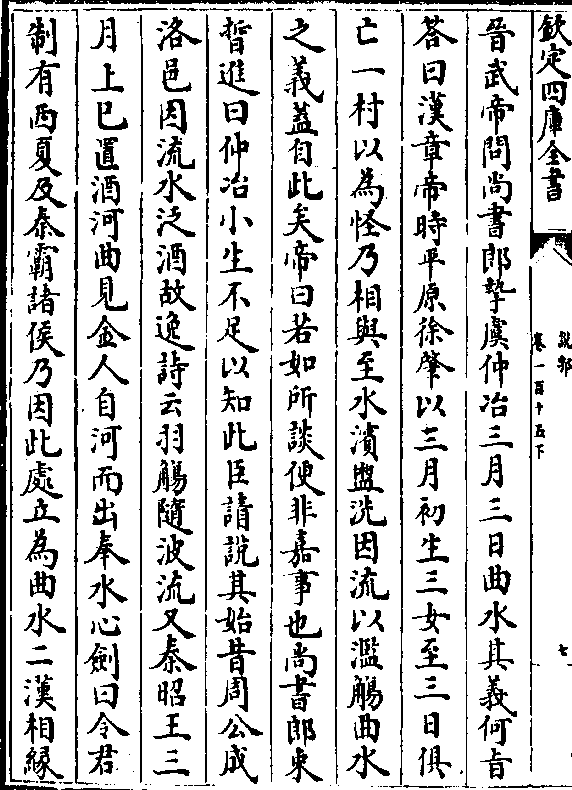 欽定四庫全書
説郛
卷一百十五下
七
晉武帝問尚書郎摯虞仲冶三月三日曲水其義何㫖
荅曰漢章帝時平原徐肇以三月初生三女至三日俱
亡一村以為怪乃相與至水濱盥洗因流以濫觴曲水
之義葢自此矣帝曰若如所談便非嘉事也尚書郎束
晳進曰仲冶小生不足以知此臣請說其始昔周公成
洛邑因流水泛酒故逸詩云羽觴隨波流又秦昭王三
月上巳置酒河曲見金人自河而出奉水心劍曰令君
制有西夏及秦霸諸侯乃因此處立為曲水二漢相緣